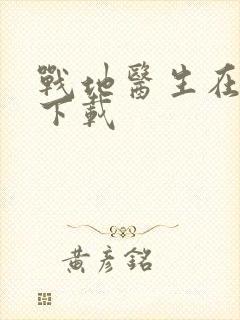 戰地醫生在
下載
黃彥銘